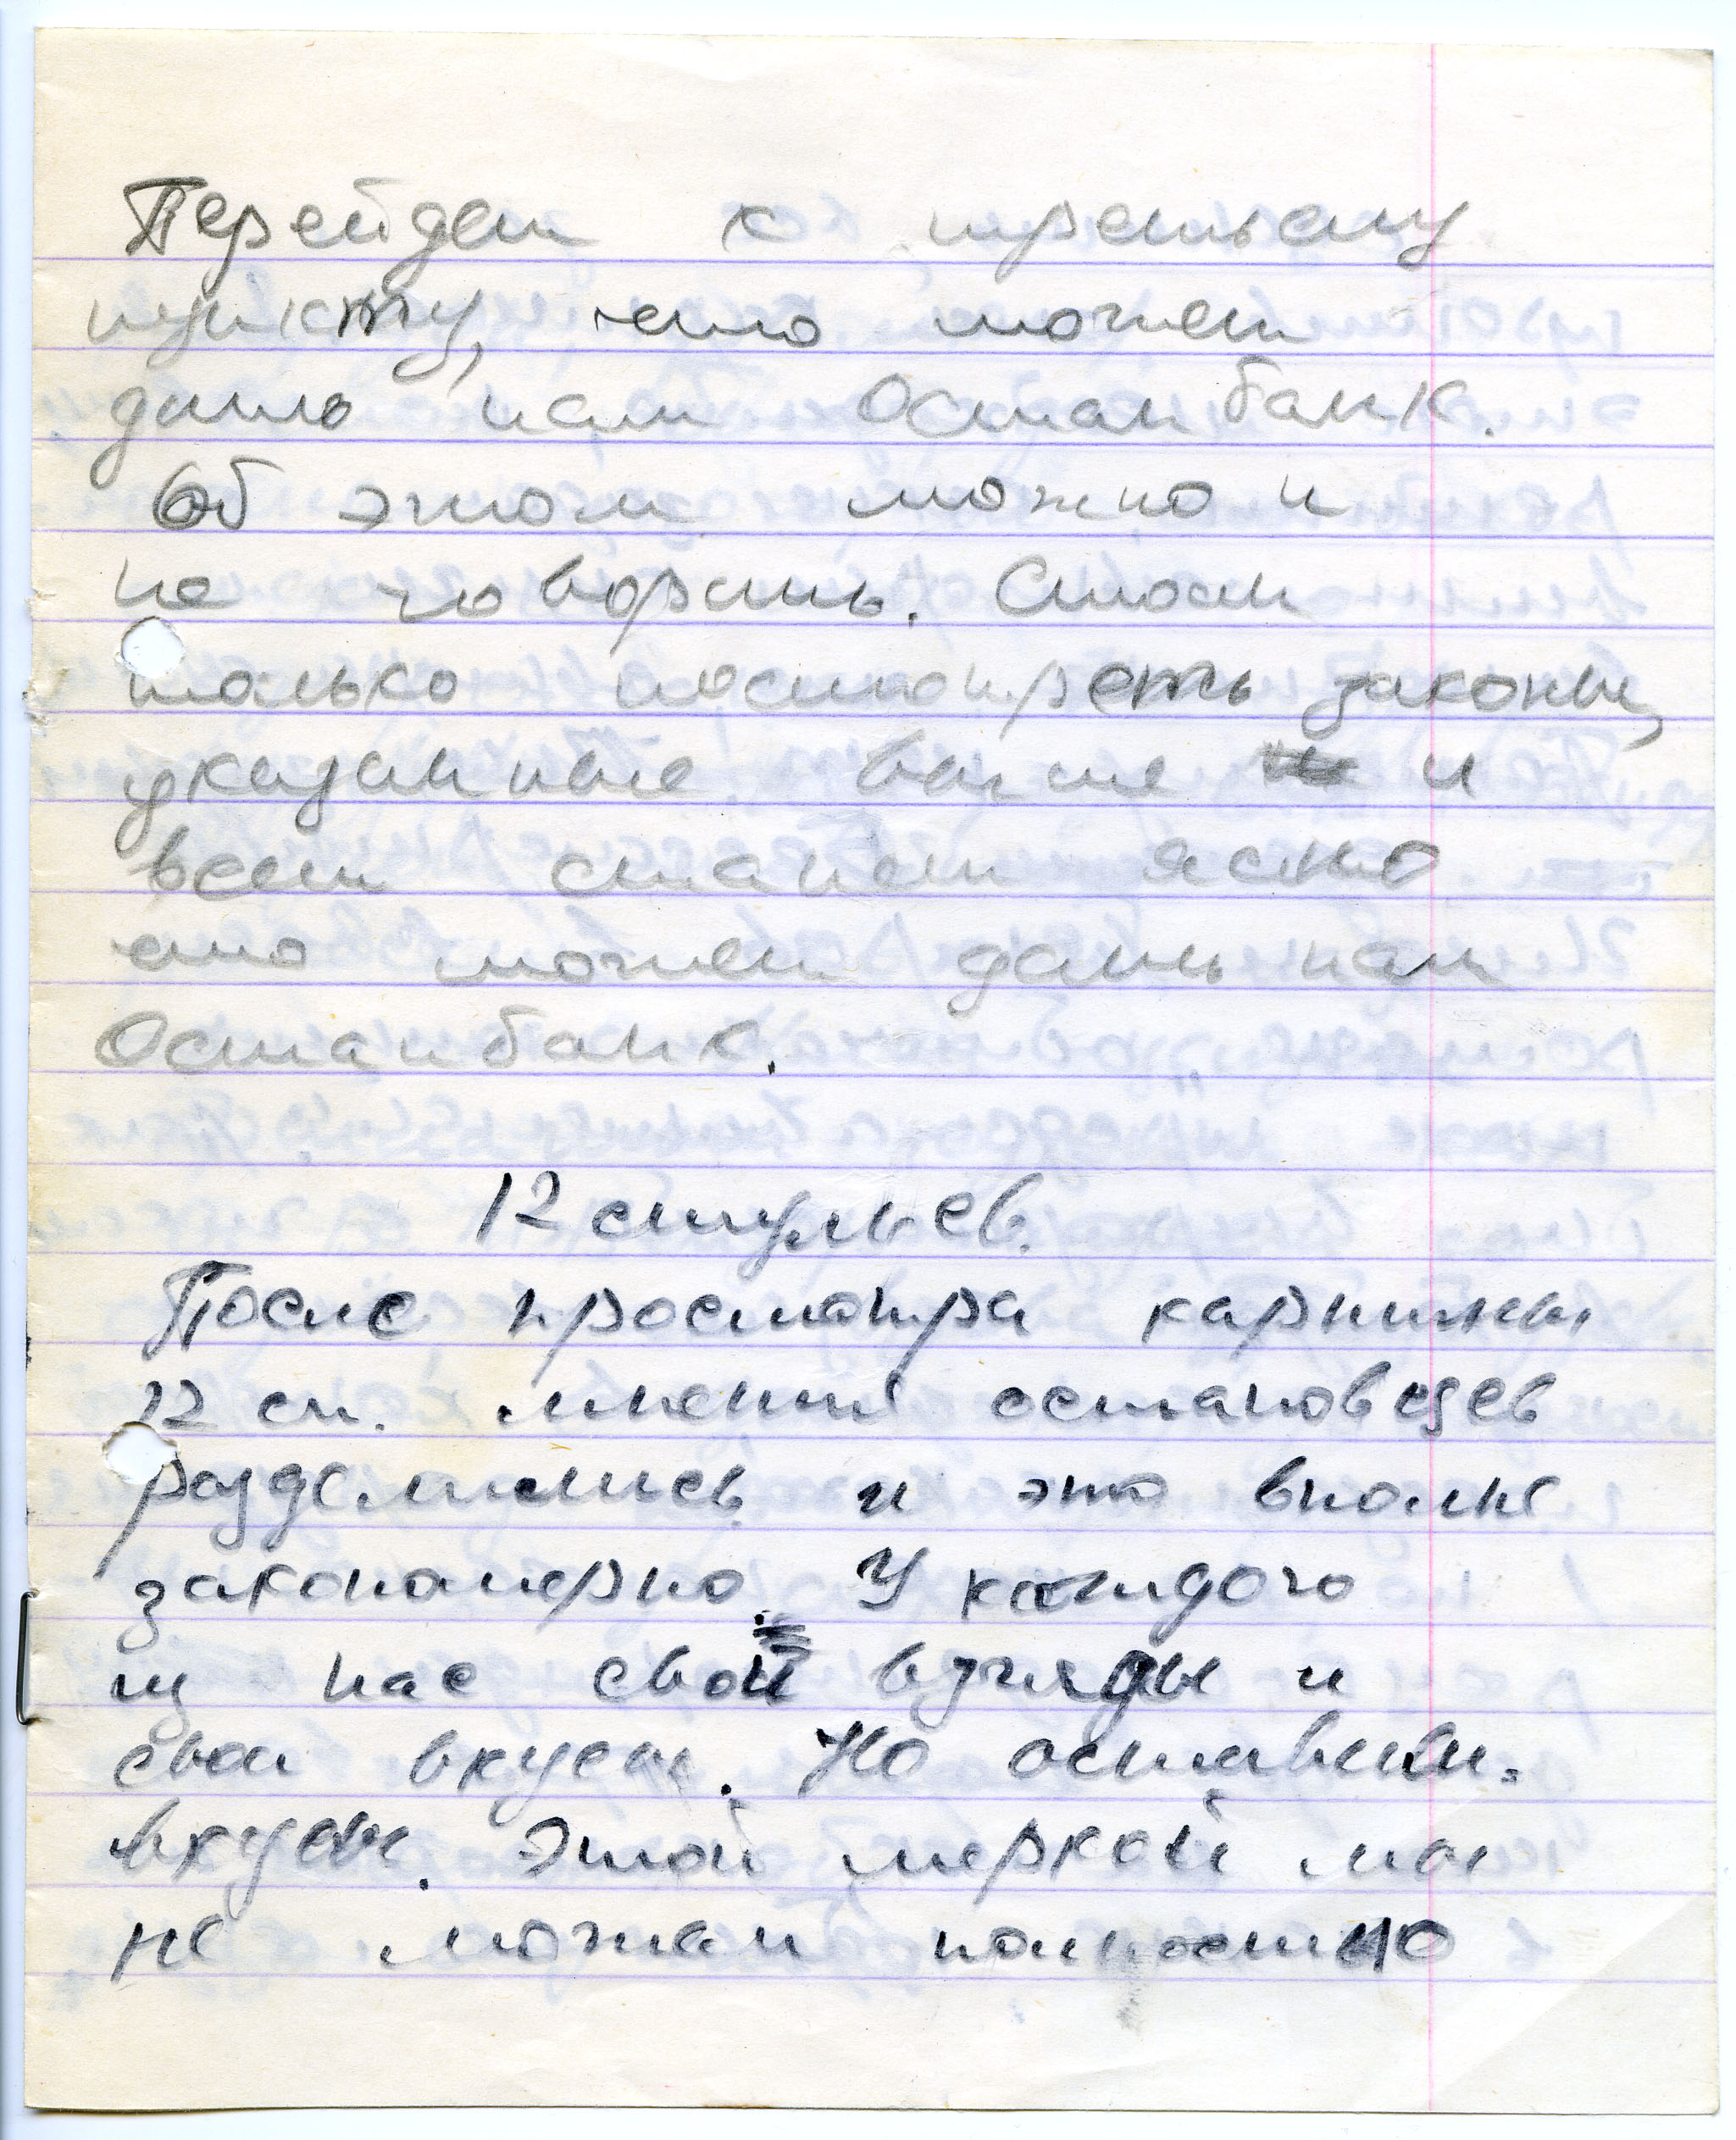 Перейдем к третьему
пункту, что может
дать нам Остапбанк.
Об этом можно и
не говорить. Стоит
только посмотреть законы,
указанные выше и
всем станет ясно
что может дать нам
Остапбанк.
12 стульев.
После просмотра картины
12 ст. мнения остаповцев
разделились и это вполне
закономерно. У каждого
из нас свои взгляды и
свои вкусы. Но оставим
вкусы. Этой меркой мы
не можем полностью